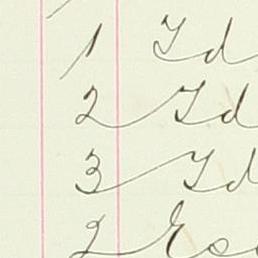 1 Id
2 Id
3 Id
2